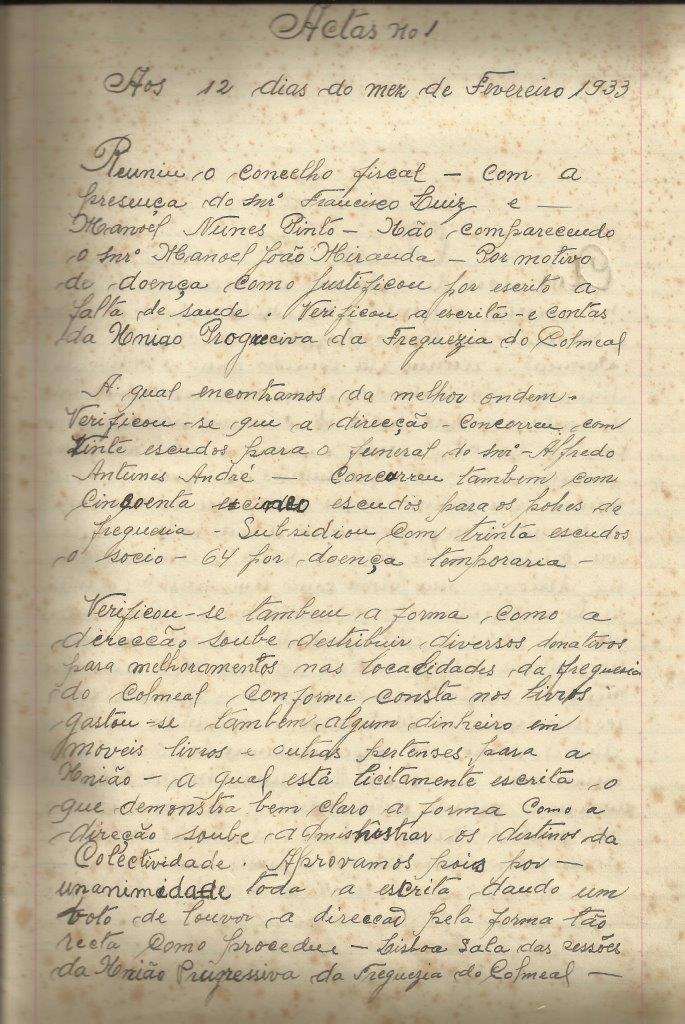 Actas no 1
Aos 12 dias do mez de Fevereiro 1933
Reuniu o concelho fiscal — com a
presença do snr. Francisco Luiz e —
Manoel Nunes Pinto — Não comparecendo
o snr. Manoel João Miranda — Por motivo
de doença como justificou por escrito a
falta de saude. Verificou a escrita - e contas
da União Progreciva da Freguezia do Colmeal
A qual encontramos da melhor ondem.
Verificou-se que a direcção - Concorreu com
Vinte escudos para o funeral do snr. - Alfredo
Antunes André — Concorreu tambem com
Cincoenta escudos para os pobres da
freguesia - Subsidiou com trinta escudos
o socio - 64 por doença temporaria -
Verificou-se tambem a forma como a
direcção soube destribuir diversos donativos
para melhoramentos nas localidades da freguesia
do Colmeal conforme consta nos livros
gastou-se tambem algum dinheiro em
moveis livros e outras pertenses para a
União - a qual está licitamente escrita o
que demonstra bem claro a forma como a
direção soube administrar os destinos da
Colectividade. Aprovamos pois por —
unanimidade toda a escrita dando um
voto de louvor a direccão pela forma tão
recta como procedeu — Lisboa Sala das sessões
da União Prugressiva da Freguezia do Colmeal —